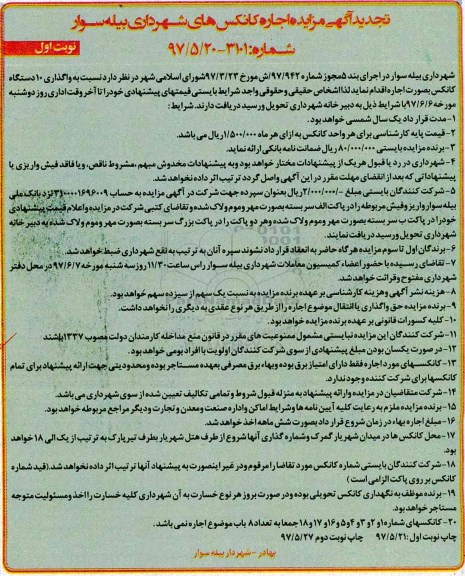 تجدید آگهی مزایده اجاره کانکس های شهرداری بیله سوار
شماره: ۳۱۰۱-۹۷/۵/۲۰
نوبت اول
شهرداری بیله سوار در اجرای بند ۵ مجوز شماره ۹۷/۹۴۲/ش مورخ ۹۷/۳/۲۳ شورای اسلامی شهر در نظر دارد نسبت به واگذاری ۱۰ دستگاه
کانکس بصورت اجاره اقدام نماید لذا اشخاص حقیقی و حقوقی واجد شرایط بایستی قیمتهای پیشنهادی خود را تا آخر وقت اداری روز دوشنبه
مورخه ۹۷/۶/۶ با شرایط ذیل به دبیر خانه شهرداری تحویل و رسید دریافت دارند. شرایط:
۱- مدت قرار داد یک سال شمسی خواهد بود.
۲- قیمت پایه کارشناسی برای هر واحد کانکس به ازای هر ماه ۱/۵۰۰/۰۰۰ ریال می باشد.
۳- برنده مزایده بایستی ۸۰/۰۰۰/۰۰۰ ریال ضمانت نامه بانکی ارائه نماید.
۴- شهرداری در رد یا قبول هر یک از پیشنهادات مختار خواهد بود و به پیشنهادات مخدوش مبهم، مشروط ناقص، و یا فاقد فیش واریزی یا
پیشنهاداتی که بعد از انقضای مهلت مقرر در این آگهی واصل گردد ترتیب اثر داده نخواهد شد.
۵- شرکت کنندگان بایستی مبلغ ۲/۰۰۰/۰۰۰ ریال بعنوان سپرده جهت شرکت در آگهی مزایده به حساب ۳۱۰۰۰۰۱۶۹۶۰۰۹ نزد بانک ملی
بیله سوار واریز و فیش مربوطه را در پاکت الف سر بسته بصورت مهر و موم ولاک شده و تقاضای کتبی شرکت در مزایده و اعلام قیمت پیشنهادی
خود را در پاکت ب سر بسته بصورت مهر و موم ولاک شده و هر دو پاکت را در پاکت بزرگ سر بسته بصورت مهر و موم ولاک شده به دبیر خانه
شهرداری تحویل و رسید دریافت نمایند.
۶- برندگان اول تا سوم مزایده هر گاه حاضر به انعقاد قرار داد نشوند سپرده آنان به ترتیب به نفع شهرداری ضبط خواهد شد.
۷- تقاضای رسیده با حضور اعضاء کمیسیون معاملات شهرداری بیله سوار راس ساعت ۱۱/۳۰ روز سه شنبه مورخه ۹۷/۶/۷ در محل دفتر
شهرداری مفتوح و قرائت خواهد شد.
۸- هزینه نشر آگهی و هزینه کارشناسی بر عهده برنده مزایده به نسبت یک سهم از سیزده سهم خواهد بود.
۹- برنده مزایده حق واگذاری یا انتقال موضوع اجاره را از طریق هر نوع عقدی به دیگری را نخواهد داشت.
۱۰- کلیه کسورات قانونی بر عهده برنده مزایده خواهد بود.
۱۱- شرکت کنندگان این مزایده نبایستی مشمول ممنوعیت های مقرر در قانون منع مداخله کارمندان دولت مصوب ۱۳۳۷ باشند
۱۲- در صورت یکسان بودن مبلغ پیشنهادی از سوی شرکت کنندگان اولویت با افراد بومی خواهد بود.
۱۳- کانکسهای مورد اجاره فقط دارای امتیاز برق بوده و بهاء برق مصرفی بعهده مستاجر بوده و محدودیتی جهت ارائه پیشنهاد برای تمام
کانکسها برای شرکت کننده وجود ندارد.
۱۴- شرکت متقاضیان در مزایده و ارائه پیشنهاد به منزله قبول شروط و تمامی تکالیف تعیین شده از سوی شهرداری می باشد.
۱۵- برنده مزایده ملزم به رعایت کلیه آیین نامه ها و شرایط اماکن و اداره صنعت و معدن و تجارت و دیگر مراجع مربوطه خواهد بود.
۱۶- مبلغ اجاره بهاء در زمان شروع قرار داد بصورت شش ماهه اخذ خواهد شد.
۱۷- محل کانکس ها در میدان شهریار گمرک و شماره گذاری آنها شروع از طرف هتل شهریار بطرف تیر پارک به ترتیب از یک الی ۱۸ خواهد
بود.
۱۸- شرکت کنندگان بایستی شماره کانکس مورد تقاضا را مرقوم و در غیر اینصورت به پیشنهاد آنها ترتیب اثر داده نخواهد شد. (قید شماره
کانکس بر روی پاکت الزامی است)
۱۹- برنده موظف به نگهداری کانکس تحویلی بوده و در صورت بروز هر نوع خسارت به آن شهرداری کلیه خسارت را اخذ و مسئولیت متوجه
مستاجر خواهد بود.
۲۰- کانکسهای شماره ۱ و ۲ و ۳ و ۴ و ۵ و ۱۶ و ۱۷ و ۱۸ جمعا به تعداد ۸ باب موضوع اجاره نمی باشد.
چاپ نوبت اول: ۹۷/۵/۲۱ چاپ نوبت دوم ۹۷/۵/۲۷
بهادر - شهردار بیله سوار